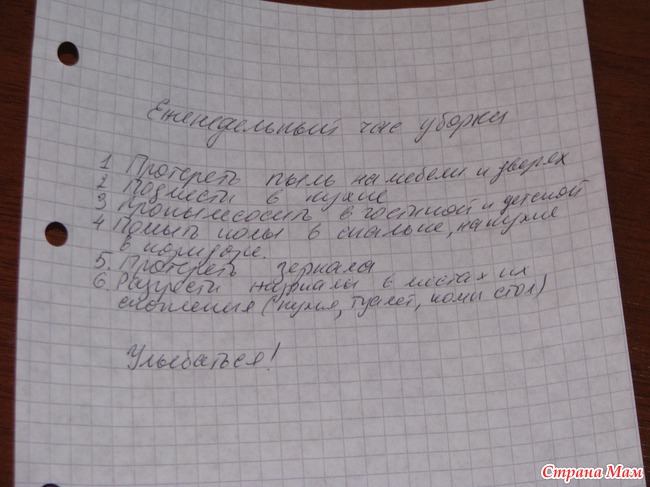 Еженедельный час уборки
1 Протереть пыль на мебели и дверях
2 Подмести в кухне
3 Пропылесосить в гостиной и детской
4 Помыть полы в спальне, на кухне
в коридоре.
5. Протереть зеркала
6. Разгрести журналы в местах их
скопления (кухня, туалет, комп стол)
Улыбаться!
Страна Мам